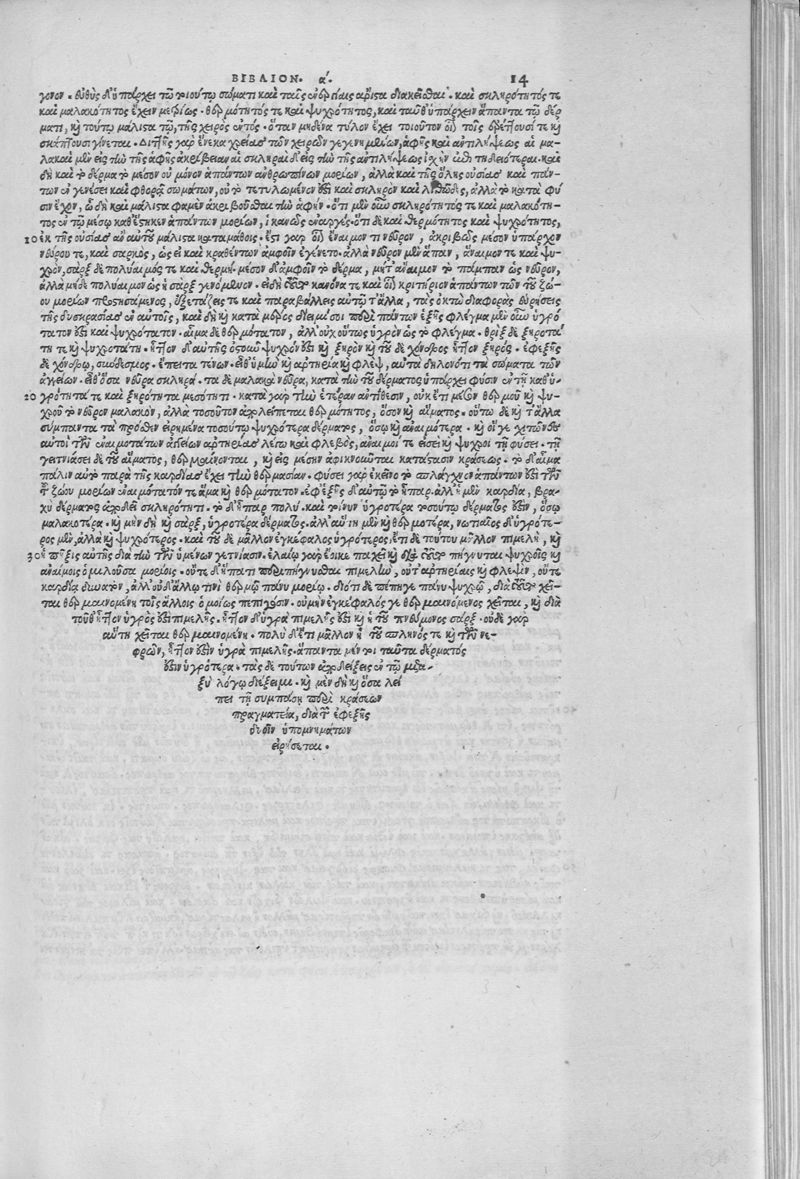 ΒΙΒΛΙΟΝ. α΄. 14
γονον. εὐθὺς δ' ὑπάρχει τῶ τοιούτῳ σώματι καὶ ταῖς ἐνεργείαις ἄριστα διακεῖσθαι. καὶ σκληρότητός τε
καὶ μαλακότητος ἔχειν μετρίως. θερμότητός τε καὶ ψυχρότητος, καὶ ταῦθ' ὑπάρχειν ἅπαντα τῶ δέρ
ματι, καὶ τούτῳ μάλιστα τῶ, τῆς χειρὸς ἐντός. ὅταν μηδένα τύλον ἔχει τοιοῦτον οἷ τοῖς ἐρέττουσί τε καὶ
σκάπτουσι γίνεται. διττῆς γὰρ ἕνεκα χρείας τῶν χειρῶν γεγενημένων, ἁφῆς καὶ ἀντιλήψεως αἱ μα-
λακαὶ μὲν εἰς τὴν τῆς ἁφῆς ἀκρίβειαν αἱ σκληραὶ δ' εἰς τὴν τῆς ἀντιλήψεως ἰσχὺν ἐπιτηδειότεραι. καὶ
δὴ καὶ τὸ δέρμα τὸ μέσον οὐ μόνον ἁπάντων ἀνθρωπίνων μορίων, ἀλλὰ καὶ τῆς ὅλης οὐσίας καὶ πάν-
των ἐν γενέσει καὶ φθορᾷ σωμάτων, οὐ τὸ τετυλωμένον ἐστὶ καὶ σκληρὸν καὶ λιθῶδες, ἀλλὰ τὸ κατὰ φύ
σιν ἔχον, ᾧ δὴ καὶ μάλιστα φαμὲν ἀκριβοῦσθαι τὴν ἁφήν. ὅτι μὲν οὖν σκληρότητός τε καὶ μαλακότη-
τος ἐν τῶ μέσῳ καθέστηκεν ἁπάντων μορίων, ἱκανῶς ἐναργές. ὅτι δὲ καὶ θερμότητος καὶ ψυχρότητος,
10 ἐκ τῆς οὐσίας ἂν αὐτοῦ μάλιστα καταμάθοις. ἔστι γὰρ οἷ ἔναιμόν τι νεῦρον, ἀκριβῶς μέσον ὑπάρχον
νεύρου τε, καὶ σαρκὸς, ὡς εἰ καὶ κραθέντων ἀμφοῖν ἐγένετο. ἀλλὰ νεῦρον μὲν ἅπαν, ἄναιμον τε καὶ ψυ-
χρόν, σὰρξ δὲ πολύαιμός τε καὶ θερμή. μέσον δ' ἀμφοῖν τὸ δέρμα, μήτ' ἄναιμον τὸ πάμπαν ὡς νεῦρον,
ἀλλὰ μηδὲ πολύαιμον ὡς ἡ σὰρξ γενόμενον. εἰ δὴ τοῦτο κανόνα τε καὶ οἷ κριτήριον ἁπάντων τῶν τοῦ ζώ-
ου μορίων προστησάμενος, ἐξετάζεις τε καὶ παραβάλλεις αὐτῶ τ' ἄλλα, τὰς ὀκτὼ διαφορὰς εὑρήσεις
τῆς δυσκρασίας ἐν αὐτοῖς, καὶ δὴ καὶ κατὰ μέρος δίειμί σοι περὶ πάντων ἑξῆς φλέγμα μὲν οὖν ὑγρό
τατον ἐστὶ καὶ ψυχρότατον. αἷμα δὲ θερμότατον, ἀλλ' οὐχ οὕτως ὑγρὸν ὡς τὸ φλέγμα. θρὶξ δὲ ξηροτά
τη τε καὶ ψυχροτάτη. ἧττον δ' αὐτῆς ὀστοῦν ψυχρόν ἐστι καὶ ξηρὸν καὶ τοῦ δὲ χόνδρος ἧττον ξηρός. ἐφεξῆς
δὲ χόνδρῳ, σύνδεσμος. ἔπειτα τένων. εἶθ' ὑμὴν καὶ ἀρτηρία καὶ φλὲψ, αὐτὰ δηλονότι τὰ σώματα τῶν
ἀγγείων. εἶθ' ὅσα νεῦρα σκληρά. τὰ δὲ μαλακὰ νεῦρα, κατὰ τὴν τοῦ δέρματος ὑπάρχει φύσιν ἐν τῇ καθ' ὑ-
20 γρότητά τε καὶ ξηρότητα μεσότητι. κατὰ γὰρ τὴν ἑτέραν ἀντίθεσιν, οὐκ ἔτι μέσον θερμοῦ καὶ ψυ-
χροῦ τὸ νεῦρον μαλακόν, ἀλλὰ τοσοῦτον ἀπολείπεται θερμότητος, ὅσον καὶ αἵματος. οὕτω δὲ καὶ τ' ἄλλα
σύμπαντα τὰ πρόσθεν εἰρημένα τοσούτῳ ψυχρότερα δέρματος, ὅσῳ καὶ ἀναιμότερα. καὶ οἵ γε χιτῶνες
αὐτοὶ τῶν ἐναιμοτάτων ἀγγείων ἀρτηρίας λέγω καὶ φλεβὸς, ἄναιμοί τε εἰσὶ καὶ ψυχροὶ τῇ φύσει. τῇ
γειτνιάσει δὲ τοῦ αἵματος, θερμαίνονται, καὶ εἰς μέσην ἀφικνοῦνται κατάστασιν κράσεως. τὸ δ' αἷμα
πάλιν αὐτὸ παρὰ τῆς καρδίας ἔχει τὴν θερμασίαν. φύσει γὰρ ἐκεῖνο τὸ σπλάγχνον ἁπάντων ἐστὶ τῶν
τοῦ ζώου μορίων ἐναιμότατόν τε ἅμα καὶ θερμότατον. ἐφεξῆς δ' αὐτῶ τὸ ἧπαρ. ἀλλ' ἡ μὲν καρδία, βρα-
χὺ δέρματος ἀποδεῖ σκληρότητι. τὸ δ' ἧπαρ πολύ. καὶ τοίνυν ὑγρότερα τοσούτῳ δέρματος ἐστὶν, ὅσῳ
μαλακώτερα. καὶ μὲν δὴ καὶ σὰρξ, ὑγροτέρα δέρματος. ἀλλ' αὕτη μὲν καὶ θερμοτέρα, νωτιαῖος δ' ὑγρότε-
ρος μὲν, ἀλλὰ καὶ ψυχρότερος. καὶ τοῦ δὲ μᾶλλον ἐγκέφαλος ὑγρότερος, ἔτι δὲ τούτου μᾶλλον πιμελή, καὶ
30 ἡ πῆξις αὐτῆς διὰ τὴν τῶν ὑμένων γειτνίασιν. ἐλαίῳ γὰρ ἔοικε παχεῖ καὶ διὰ τοῦτο πήγνυται ψυχροῖς καὶ
ἀναίμοις ὁμιλοῦσα μορίοις. οὔτε δ' ἥπατι περιπήγνυσθαι πιμελὴν, οὔτ' ἀρτηρίαις καὶ φλεψὶν, οὔτε
καρδίᾳ δυνατόν, ἀλλ' οὐδ' ἄλλῳ τινὶ θερμῷ πάνυ μορίῳ. διότι δὲ πέπηγε πάνυ ψυχρῷ, διὰ τοῦτο χεῖ-
ται θερμαινομένη τοῖς ἄλλοις ὁμοίως πεπηγόσιν. οὐ μὴν ἐγκέφαλός γε θερμαινόμενος χεῖται, καὶ διὰ
τοῦθ' ἧττον ὑγρὸς ἐστὶ πιμελῆς. ἧττον δ' ὑγρὰ πιμελῆς ἐστὶ καὶ ἡ τοῦ πνεύμονος σάρξ. οὐδὲ γὰρ
αὕτη χεῖται θερμαινομένη. πολὺ δ' ἔτι μᾶλλον ἡ τοῦ σπληνός τε καὶ τῶν νε-
φρῶν, ἧττον ἐστὶν ὑγρὰ πιμελῆς. ἅπαντα μέν τοι ταῦτα δέρματός
ἐστιν ὑγρότερα. τὰς δὲ τούτων ἀποδείξεις ἐν τῶ μετα-
ξὺ λόγῳ διέξειμι. καὶ μὲν δὴ καὶ ὅσα λεί
πει τῇ συμπάσῃ περὶ κράσεων
πραγματείᾳ, διὰ τῶν ἐφεξῆς
δυοῖν ὑπομνημάτων
εἰρήσεται.